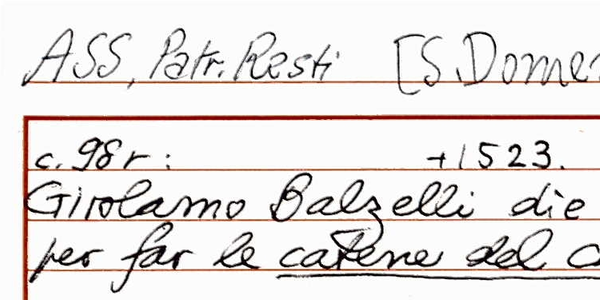 ASS, Patr. Resti [S. Dome
c. 98 r: +1523.
Girolamo Balzelli die
per far le catene del